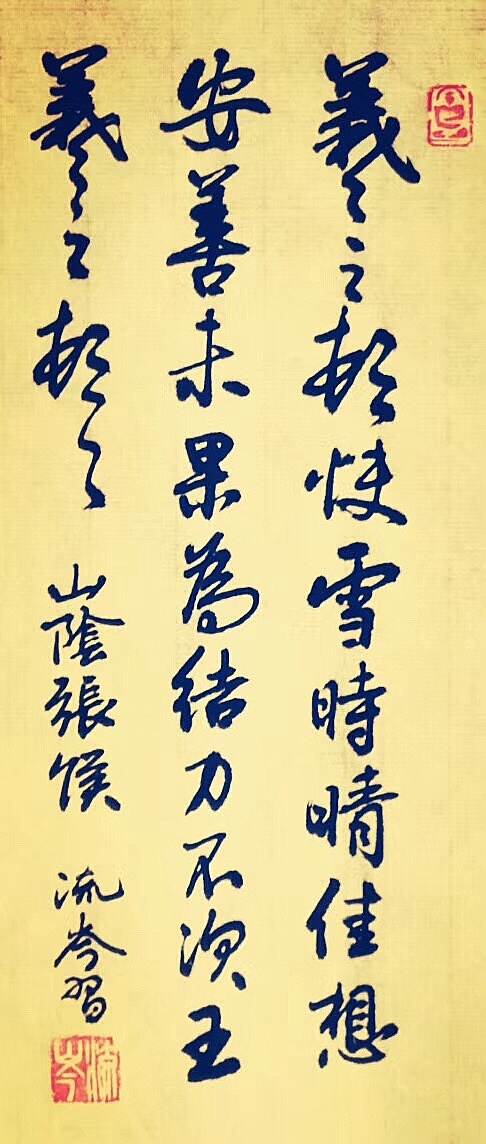 羲之頓快雪時晴佳想
安善未果為結力不次王
羲之頓之
山陰張侯
流岑習